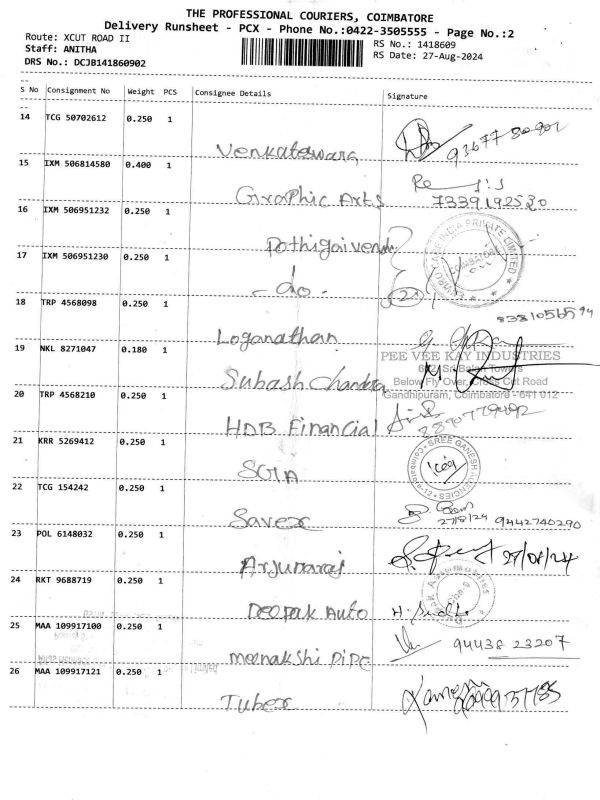 THE PROFESSIONAL COURIERS, COIMBATORE
Delivery Runsheet - PCX - Phone No.:0422-3505555 - Page No.:2
Route: XCUT ROAD II
RS No.: 1418609
Staff: ANITHA
RS Date: 27-Aug-2024
DRS No.: DCJB141860902
S No Consignment No Weight PCS Consignee Details Signature
14 TCG 50702612 0.250 1
Venkateswara
15 IXM 506814580 0.400 1
Graphic Arts 7339192520
16 IXM 506951232 0.250 1
Pothigaivendh
17 IXM 506951230 0.250 1
- do -
18 TRP 4568098 0.250 1
Loganathan
19 NKL 8271047 0.180 1
PEE VEE KAY INDUSTRIES
Subash Chandra
Below Fly Over, Cross Cut Road
20 TRP 4568210 0.250 1
Gandhipuram, Coimbatore - 641 012
HDB Financial
21 KRR 5269412 0.250 1
SREE GANESH AGENCIES
SGIA
22 TCG 154242 0.250 1
Savex 27/8/24 9442740290
23 POL 6148032 0.250 1
Arjunaraj 27/08/24
24 RKT 9688719 0.250 1
Deepak Auto
25 MAA 109917100 0.250 1
94438 23207
meenakshi PiPE
26 MAA 109917121 0.250 1
Tubex